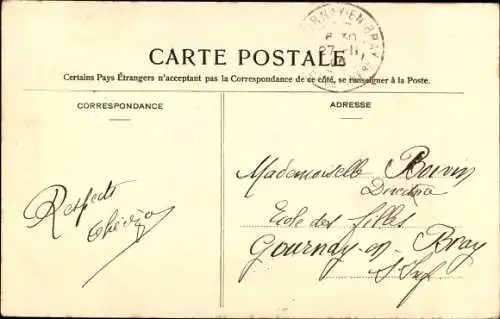 GOURNAY-EN-BRAY
6 30
27-11
CARTE POSTALE
Certains Pays Étrangers n'acceptant pas la Correspondance de ce côté, se renseigner à la Poste.
CORRESPONDANCE
ADRESSE
Respects
Mademoiselle Boivin
Directrice
Ecole des filles
Gournay-en-Bray
S. Inf